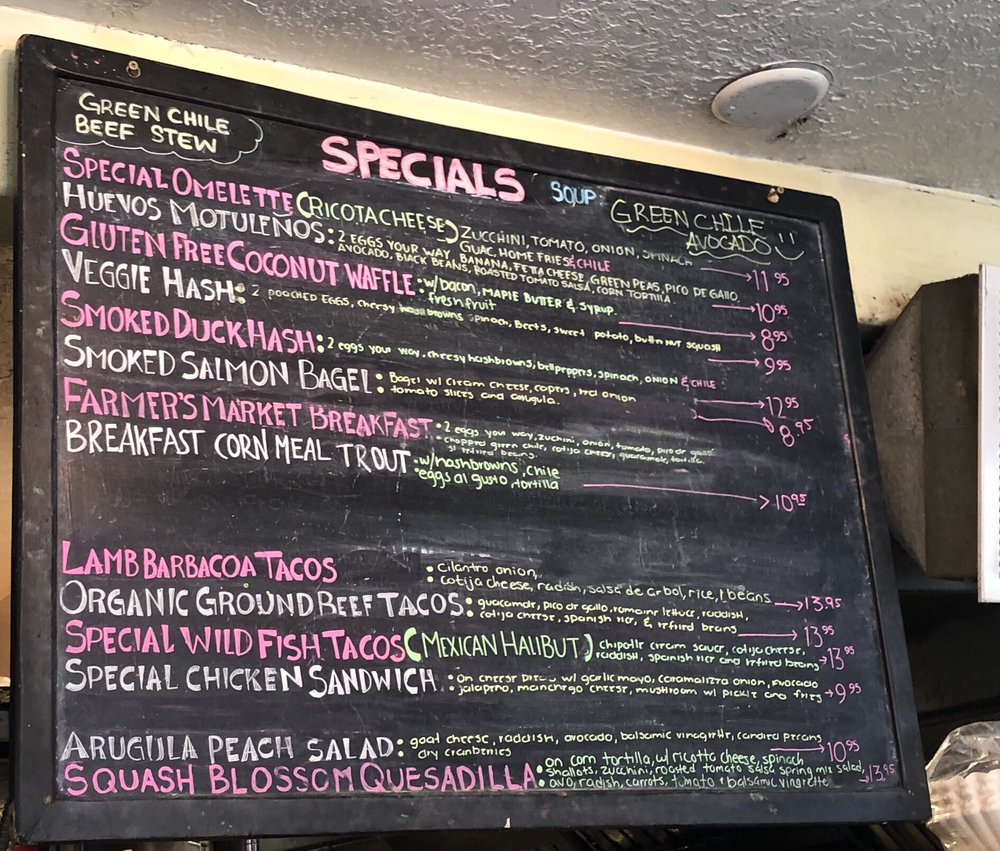 GREEN CHILE
BEEF STEW
SPECIALS
SOUP.
GREEN CHILE
AVOCADO
SPECIAL OMELETTE (RICOTA CHEESE) ZUCCHINI, TOMATO, ONION, SPINACH
GUAC, HOME FRIES & CHILE 11 95
HUEVOS MOTULEÑOS: 2 EGGS YOUR WAY, BANANA, FETTA CHEESE, GREEN PEAS, PICO DE GALLO
AVOCADO, BLACK BEANS, ROASTED TOMATO SALSA, CORN TORTILLA 10 95
GLUTEN FREE COCONUT WAFFLE: w/bacon, MAPLE BUTTER & SYRUP
fresh fruit 8 95
VEGGIE HASH: 2 POACHED EGGS, cheesy hashbrowns spinach, Beets, sweet potato, buttnNUT squash 9 95
SMOKED DUCK HASH: 2 eggs your way, cheesy hashbrowns, bellpeppers, spinach, ONION & CHILE 12 95
SMOKED SALMON BAGEL: Bagel w/ cream cheese, capers, red onion
tomato slices and arugula. 8.95
FARMER'S MARKET BREAKFAST: 2 eggs your way, zuchini, onion, tomato, pico de gallo
chopped green chile, cotija cheese, guacamole, tortilla.
refried beans.
BREAKFAST CORN MEAL TROUT: w/hashbrowns, chile
eggs al gusto, tortilla 10 95
LAMB BARBACOA TACOS : cilantro onion,
cotija cheese, radish, salsa de arbol, rice, & beans 13.95
ORGANIC GROUND BEEF TACOS: guacamole, pico de gallo, romaine lettuce, raddish,
cotija cheese, spanish rice, & refried beans 13 95
SPECIAL WILD FISH TACOS (MEXICAN HALIBUT) chipotle cream sauce, cotija cheese,
raddish, spanish rice and refried beans 13 95
SPECIAL CHICKEN SANDWICH : on cheese bread w/ garlic mayo, caramalizza onion, avocado
jalapeno, manchego cheese, mushroom w/ pickle and fries 9 95
ARUGULA PEACH SALAD: goat cheese, raddish, avocado, balsamic vinagrette, candied pecans
dry cranberries 10 95
SQUASH BLOSSOM QUESADILLA: on corn tortilla, w/ ricotto cheese, spinach
shallots, zucchini, roasted tomato salsa spring mix salad,
avo, radish, carrots, tomato & balsamic vingrette 13.95